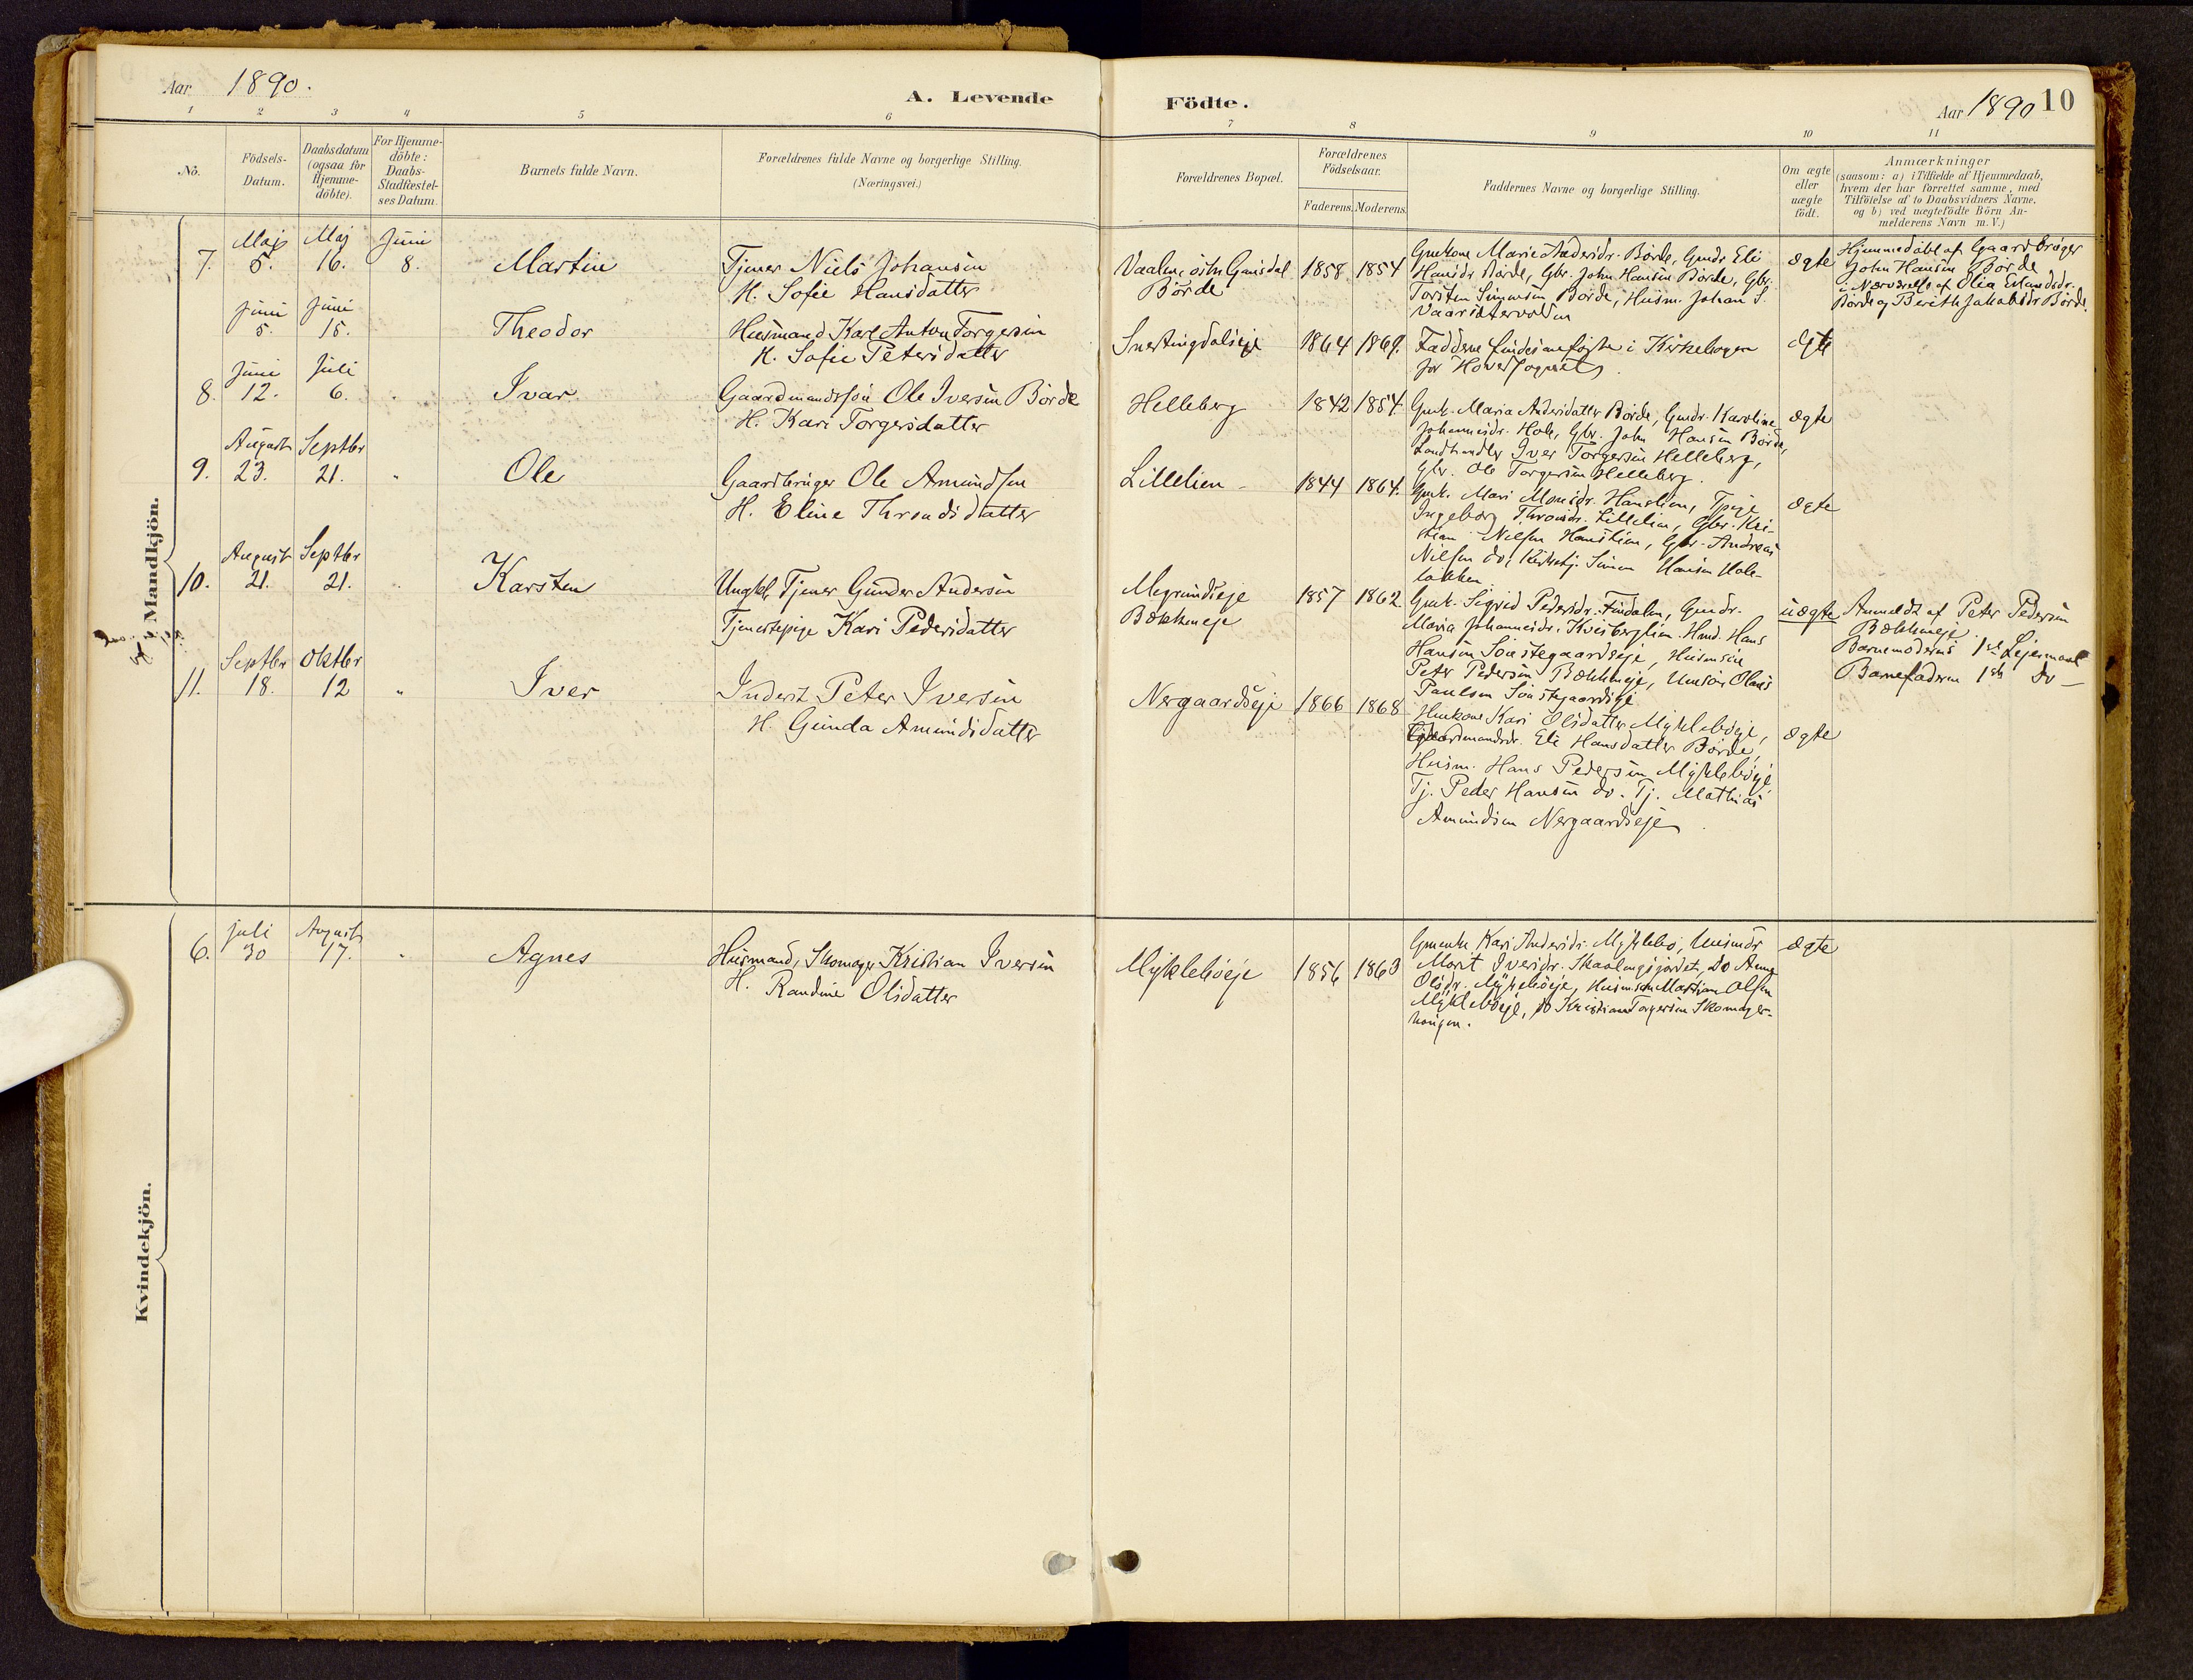 Aar 1890.
A. Levende
Födte.
Aar 1890 10
1 2 3 4 5 6 7 8 9 10 11
No.
Födsels-Datum.
Daabsdatum (ogsaa for Hjemmedöbte).
For Hjemmedöbte: Daabs-Stadfæstelses Datum.
Barnets fulde Navn.
Forældrenes fulde Navne og borgerlige Stilling.
(Næringsvei.)
Forældrenes Bopæl.
Forældrenes Födselsaar.
Faderens. Moderens.
Faddernes Navne og borgerlige Stilling.
Om ægte eller uægte födt.
Anmærkninger
(saasom: a) i Tilfælde af Hjemmedaab,
hvem der har forrettet samme, med
Tilföielse af to Daabsvidners Navne,
og b) ved uægtefödte Börn Anmelderens Navn m. V.)
Mandkjön.
7. Maj 5. Maj 16. Juni 8. Martin
Tjener Niels Johansen
H. Sofie Hansdatter
Börde
1858. 1854
Gmkone Marie Andersdr. Börde, Gmdr. Eli
Hansdr. Börde, Gbr. John Hansen Börde, Gbr.
Torsten Simensen Börde, Husm. Johan S.
ægte
Hjemmedöbt af Gaardbruger
John Hansen Börde
i Nærværelse af Olia Erlandsdr.
Börde og Berethe Jakobsdr. Börde.
Juni 5. Juni 15. Theodor
Husmand Karl Anton Torgersen
H. Sofie Petersdatter
Snertingdalseje
1864 1869.
Fadderne findes anförte i Kirkebogen
for Hovedsognet
ægte
8. Juni 12. Juli 6. " Ivar
Gaardmandssön Ole Iversen Börde
H. Kari Torgersdatter
Helleberg
1842 1854
Gmk. Maria Andersdatter Börde, Gmdr. Karoline
Johannesdr. Hole, Gbr. John Hansen Börde,
Landhandler Iver Torgersen Helleberg,
Gbr. Ole Torgersen Helleberg.
ægte
9. August 23. Septbr 21. " Ole
Gaardbruger Ole Amundsen
H. Eline Throndsdatter
Lillelien -
1844 1864.
Gmk. Mari Monsdr. Hanslien, Tpige
Ingeborg Throndsdr. Lillelien, Gbr. Kristian
Nilsen Hanslien, Gbr. Andreas
Nilsen do, Kirketj. Simen Hansen Holelökken
ægte
10. August 21. Septbr 21. " Karsten
Ungkl. Tjener Gunder Andersen
Tjenestepige Kari Pedersdatter
Megrundseje
Bækkeneje
1857 1862.
Gmk. Sigrid Pedersdr. Findalen, Gmdr.
Maria Johannesdr. Kvisberglien. Hmd. Hans
Hansen Sönstegaardseje, Husmsön
Peter Pedersen Bækkeneje, Umsön Olaus
Paulsen Sönstegaardseje
uægte
Anmeldt af Peter Pedersen
Bækkeneje.
Barnemoderens 1ste Lejermaal
Barnefaderen 1ste do -
11. Septbr 18. Oktbr 12 " Iver
Inderst Peter Iversen
H. Gunda Amundsdatter
Nergaardseje
1866 1868
Huskone Kari Olsdatter Mykleböeje,
Gaardmandsdr. Eli Hansdatter Börde,
Husm. Hans Pedersen Mykleböeje,
Tj. Peder Hansen do. Tj. Mathias
Amundsen Nergaardseje.
ægte
Kvindekjön.
6. Juli 30 August 17. " Agnes
Husmand, Skomager Kristian Iversen
H. Randine Olsdatter
Mykleböeje
1856 1863
Gmenke Kari Andersdr. Myklebö, Husmdr
Marit Iversdr. Skaalengsjordet, do Anna
Olsdr. Mykleböeje, Husmsön Martian Olsen
Mykleböeje, do Kristian Torgersen Skomagerhaugen.
ægte